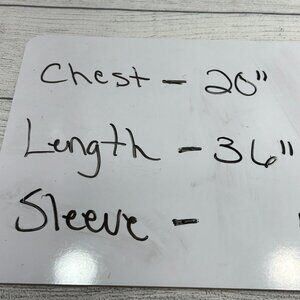 Chest - 20"
Length - 36"
Sleeve -